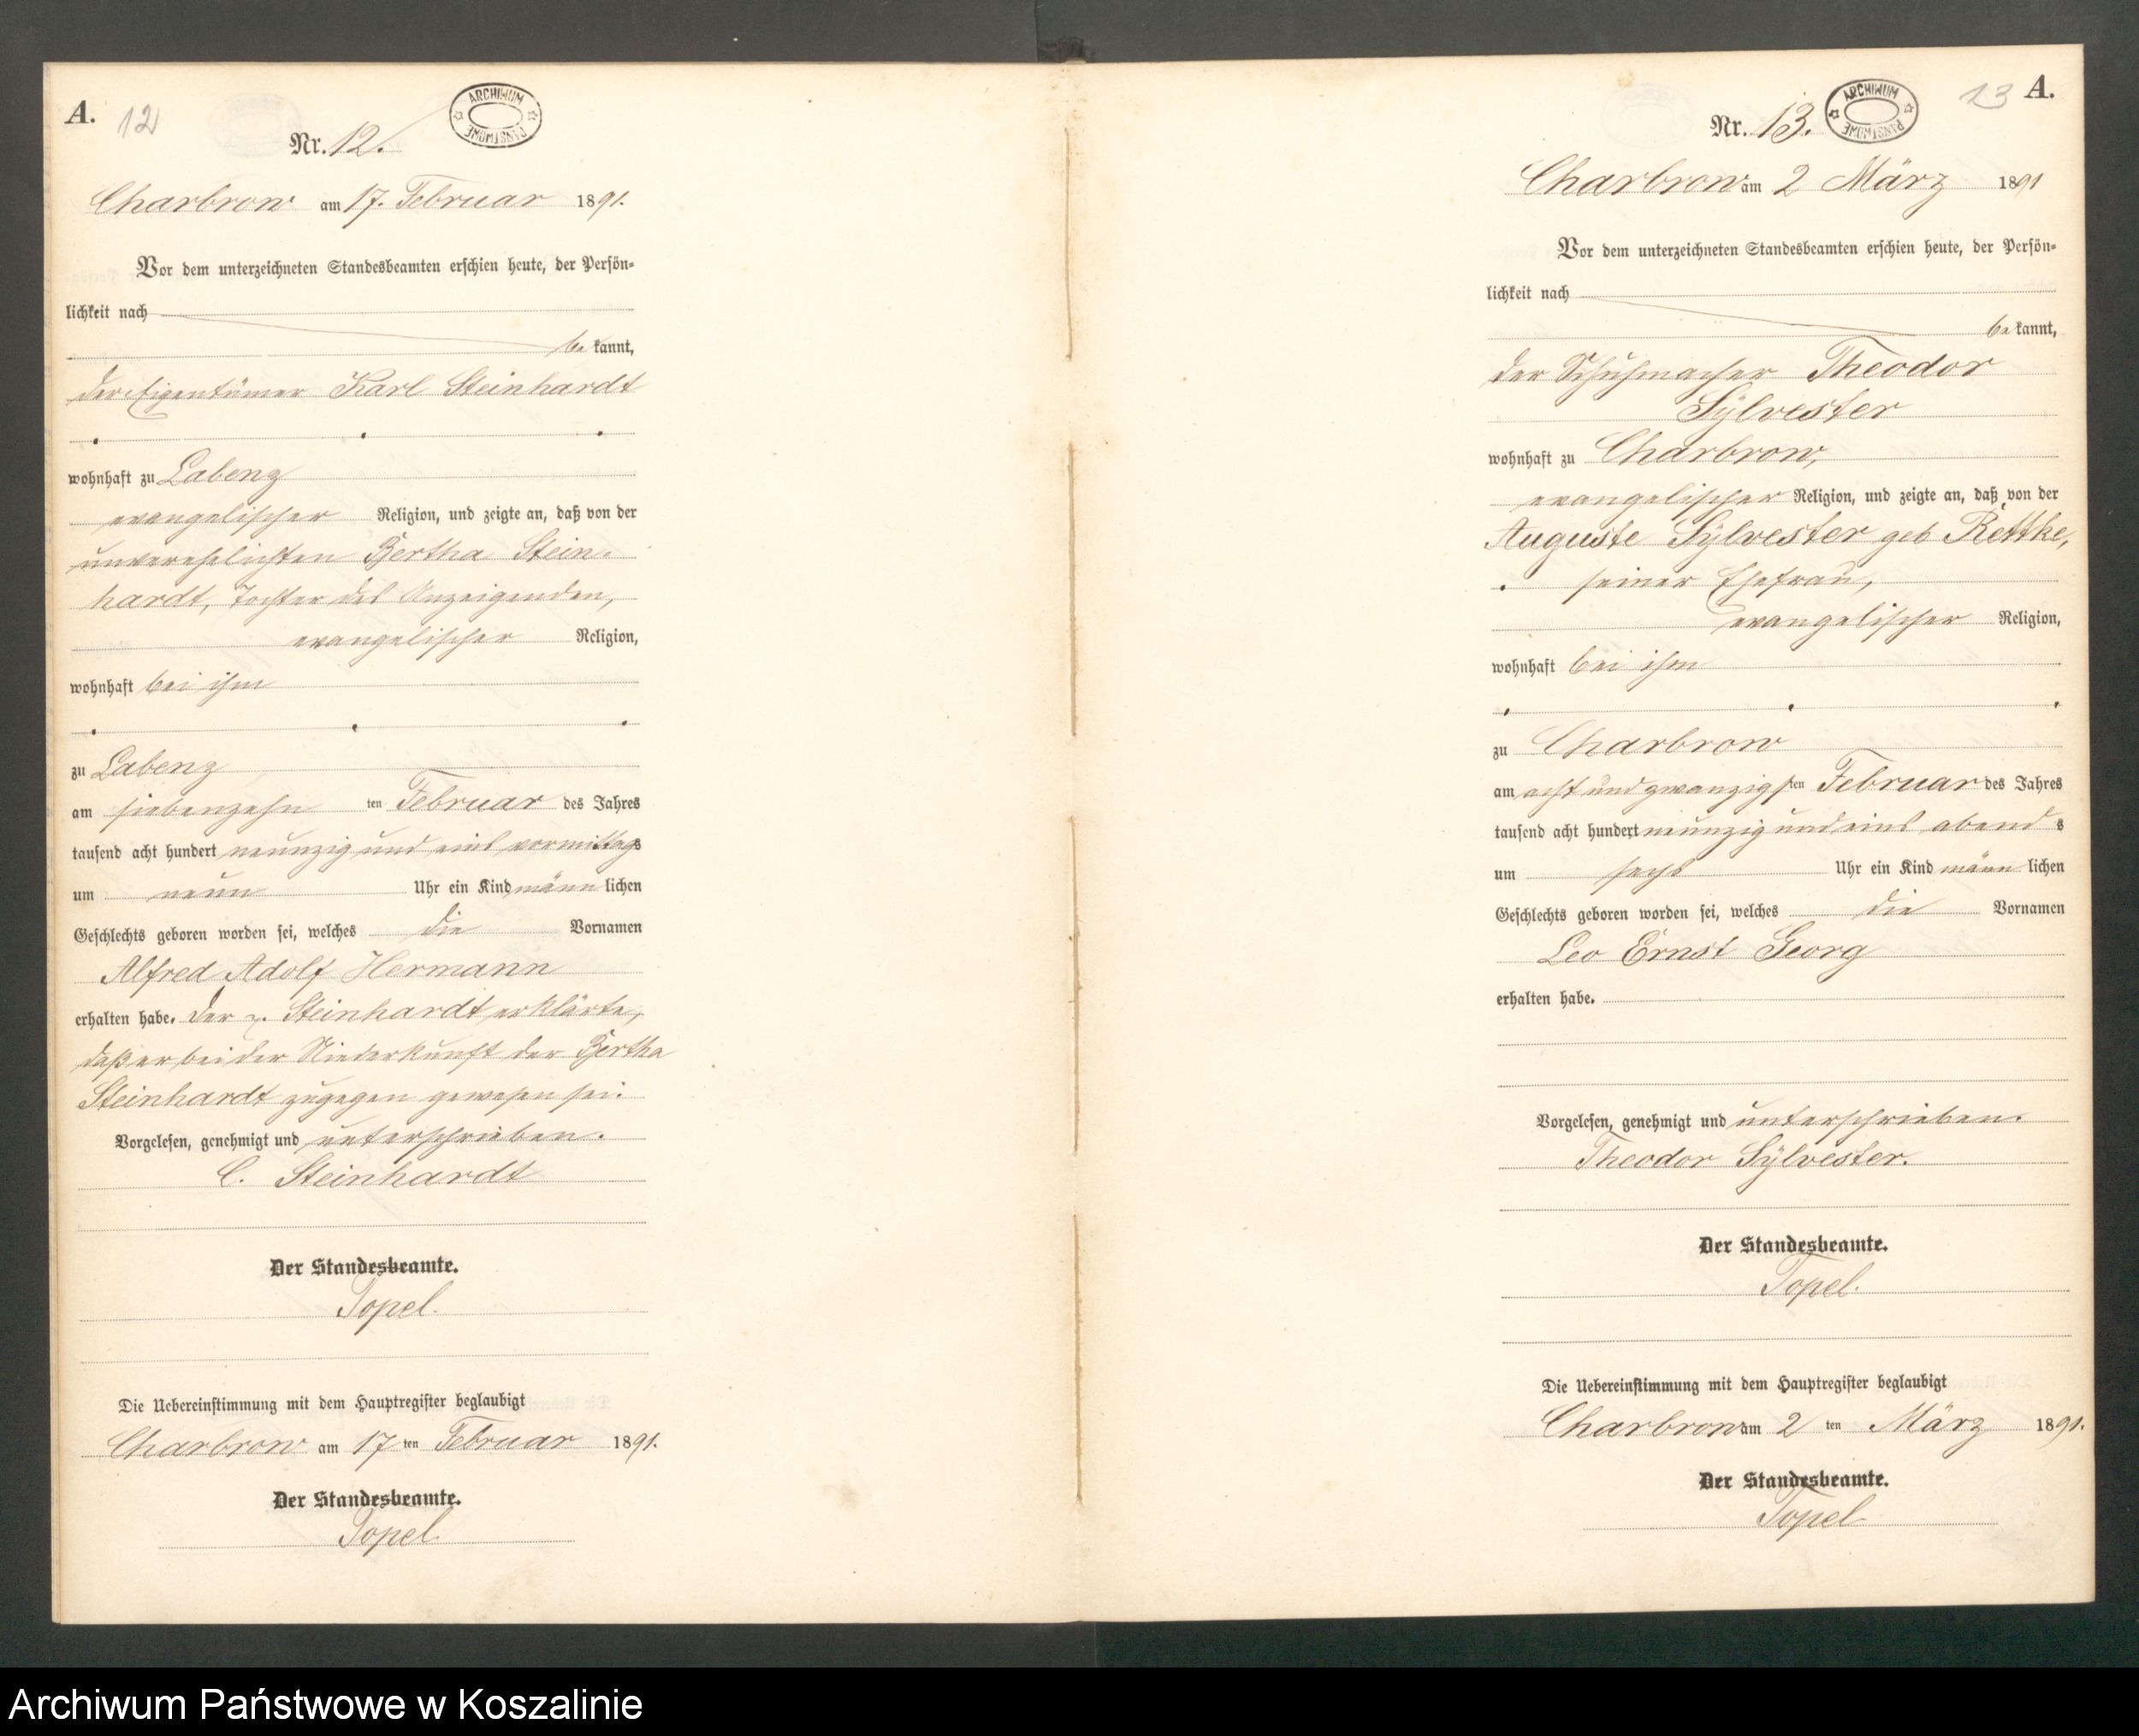 A. 12
ARCHIWUM PAŃSTWOWE
Nr. 12.
Charbrow am 17. Februar 1891.
Vor dem unterzeichneten Standesbeamten erschien heute, der Persön-
lichkeit nach
bekannt,
der Eigentümer Karl Steinhardt
wohnhaft zu Labenz
evangelischer Religion, und zeigte an, daß von der
unverehelichten Bertha Stein-
hardt, Tochter des Anzeigenden,
evangelischer Religion,
wohnhaft bei ihm
zu Labenz
am siebenzehn ten Februar des Jahres
tausend acht hundert neunzig und eins vormittags
um neun Uhr ein Kind männlichen
Geschlechts geboren worden sei, welches die Vornamen
Alfred Adolf Hermann
erhalten habe. Der p. Steinhardt erklärte,
daß er bei der Niederkunft der Bertha
Steinhardt zugegen gewesen sei.
Vorgelesen, genehmigt und unterschrieben.
C. Steinhardt
Der Standesbeamte.
Topel.
Die Uebereinstimmung mit dem Hauptregister beglaubigt
Charbrow am 17 ten Februar 1891.
Der Standesbeamte.
Topel
13 A.
ARCHIWUM PAŃSTWOWE
Nr. 13.
Charbrow am 2 März 1891
Vor dem unterzeichneten Standesbeamten erschien heute, der Persön-
lichkeit nach
bekannt,
der Schuhmacher Theodor
Sÿlvester
wohnhaft zu Charbrow,
evangelischer Religion, und zeigte an, daß von der
Auguste Sÿlvester geb Rettke,
seiner Ehefrau,
evangelischer Religion,
wohnhaft bei ihm
zu Charbrow
am acht und zwanzigsten Februar des Jahres
tausend acht hundert neunzig und eins abends
um sechs Uhr ein Kind männlichen
Geschlechts geboren worden sei, welches die Vornamen
Leo Ernst Georg
erhalten habe.
Vorgelesen, genehmigt und unterschrieben.
Theodor Sÿlvester.
Der Standesbeamte.
Topel.
Die Uebereinstimmung mit dem Hauptregister beglaubigt
Charbrow am 2 ten März 1891.
Der Standesbeamte.
Topel
Archiwum Państwowe w Koszalinie